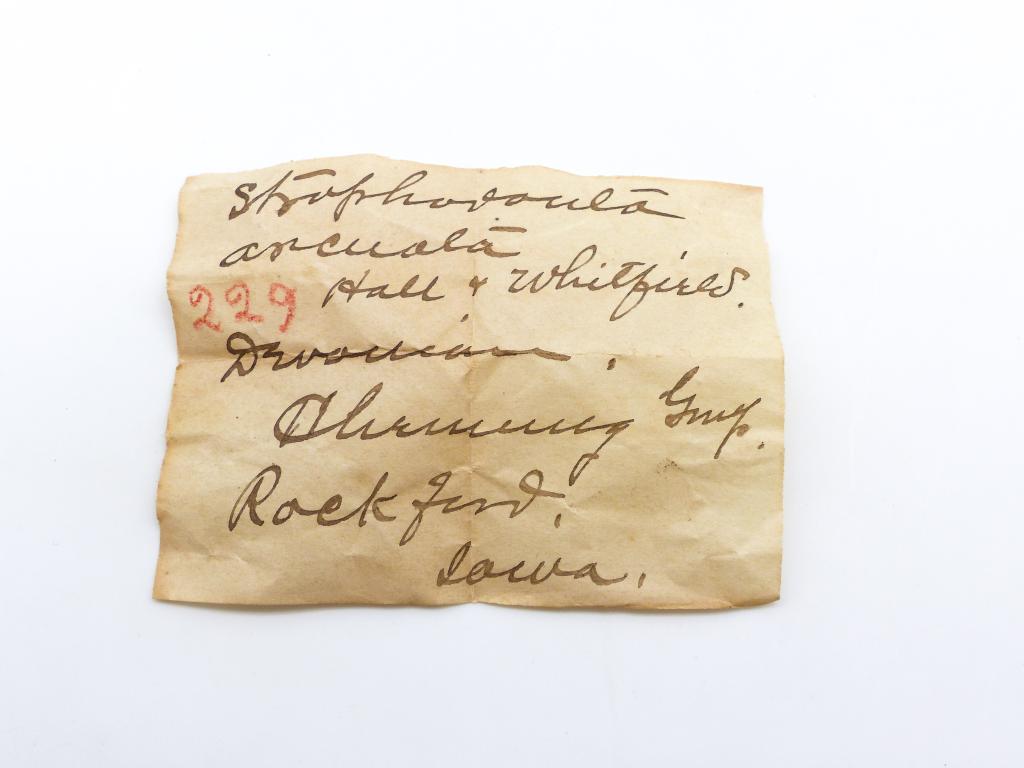 Strophodonta
arcuata
229 Hall & Whitfield.
Devonian.
Chemung Group.
Rockford,
Iowa.